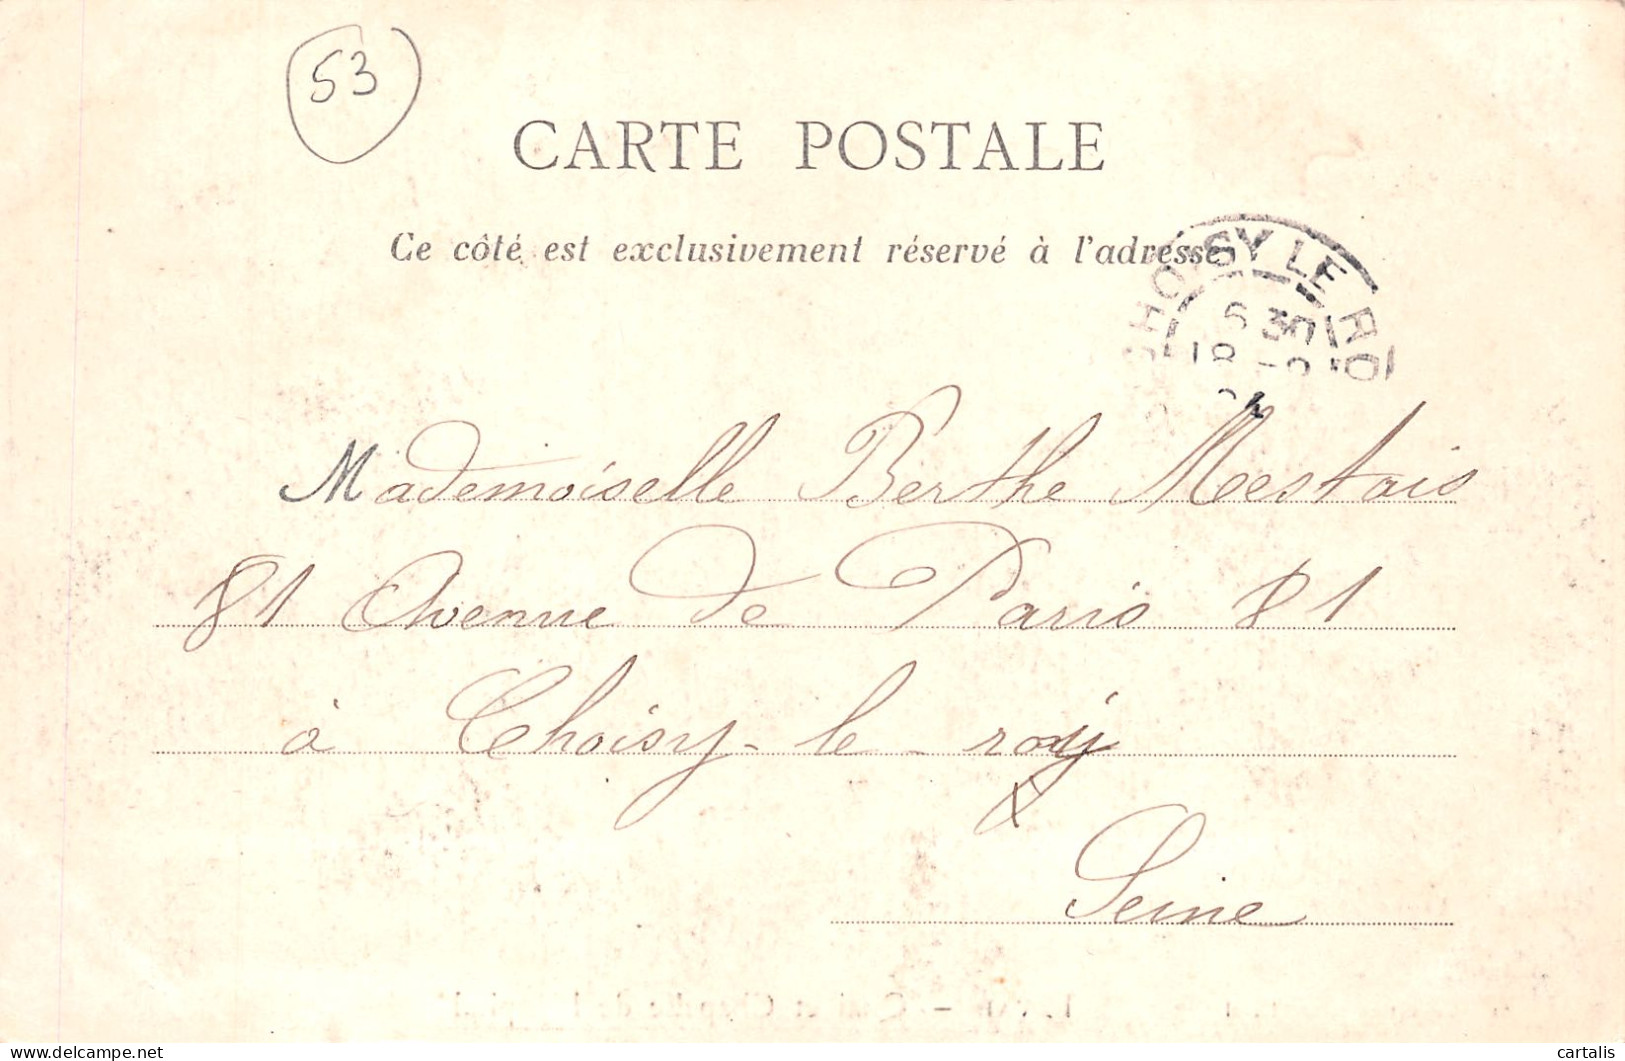 53
CARTE POSTALE
Ce côté est exclusivement réservé à l'adresse
CHOISY LE RO
6 30
18
Mademoiselle Berthe Mestais
81 Avenue de Paris 81
à Choisy-le-roy
Seine
delcampe.net
cartalis